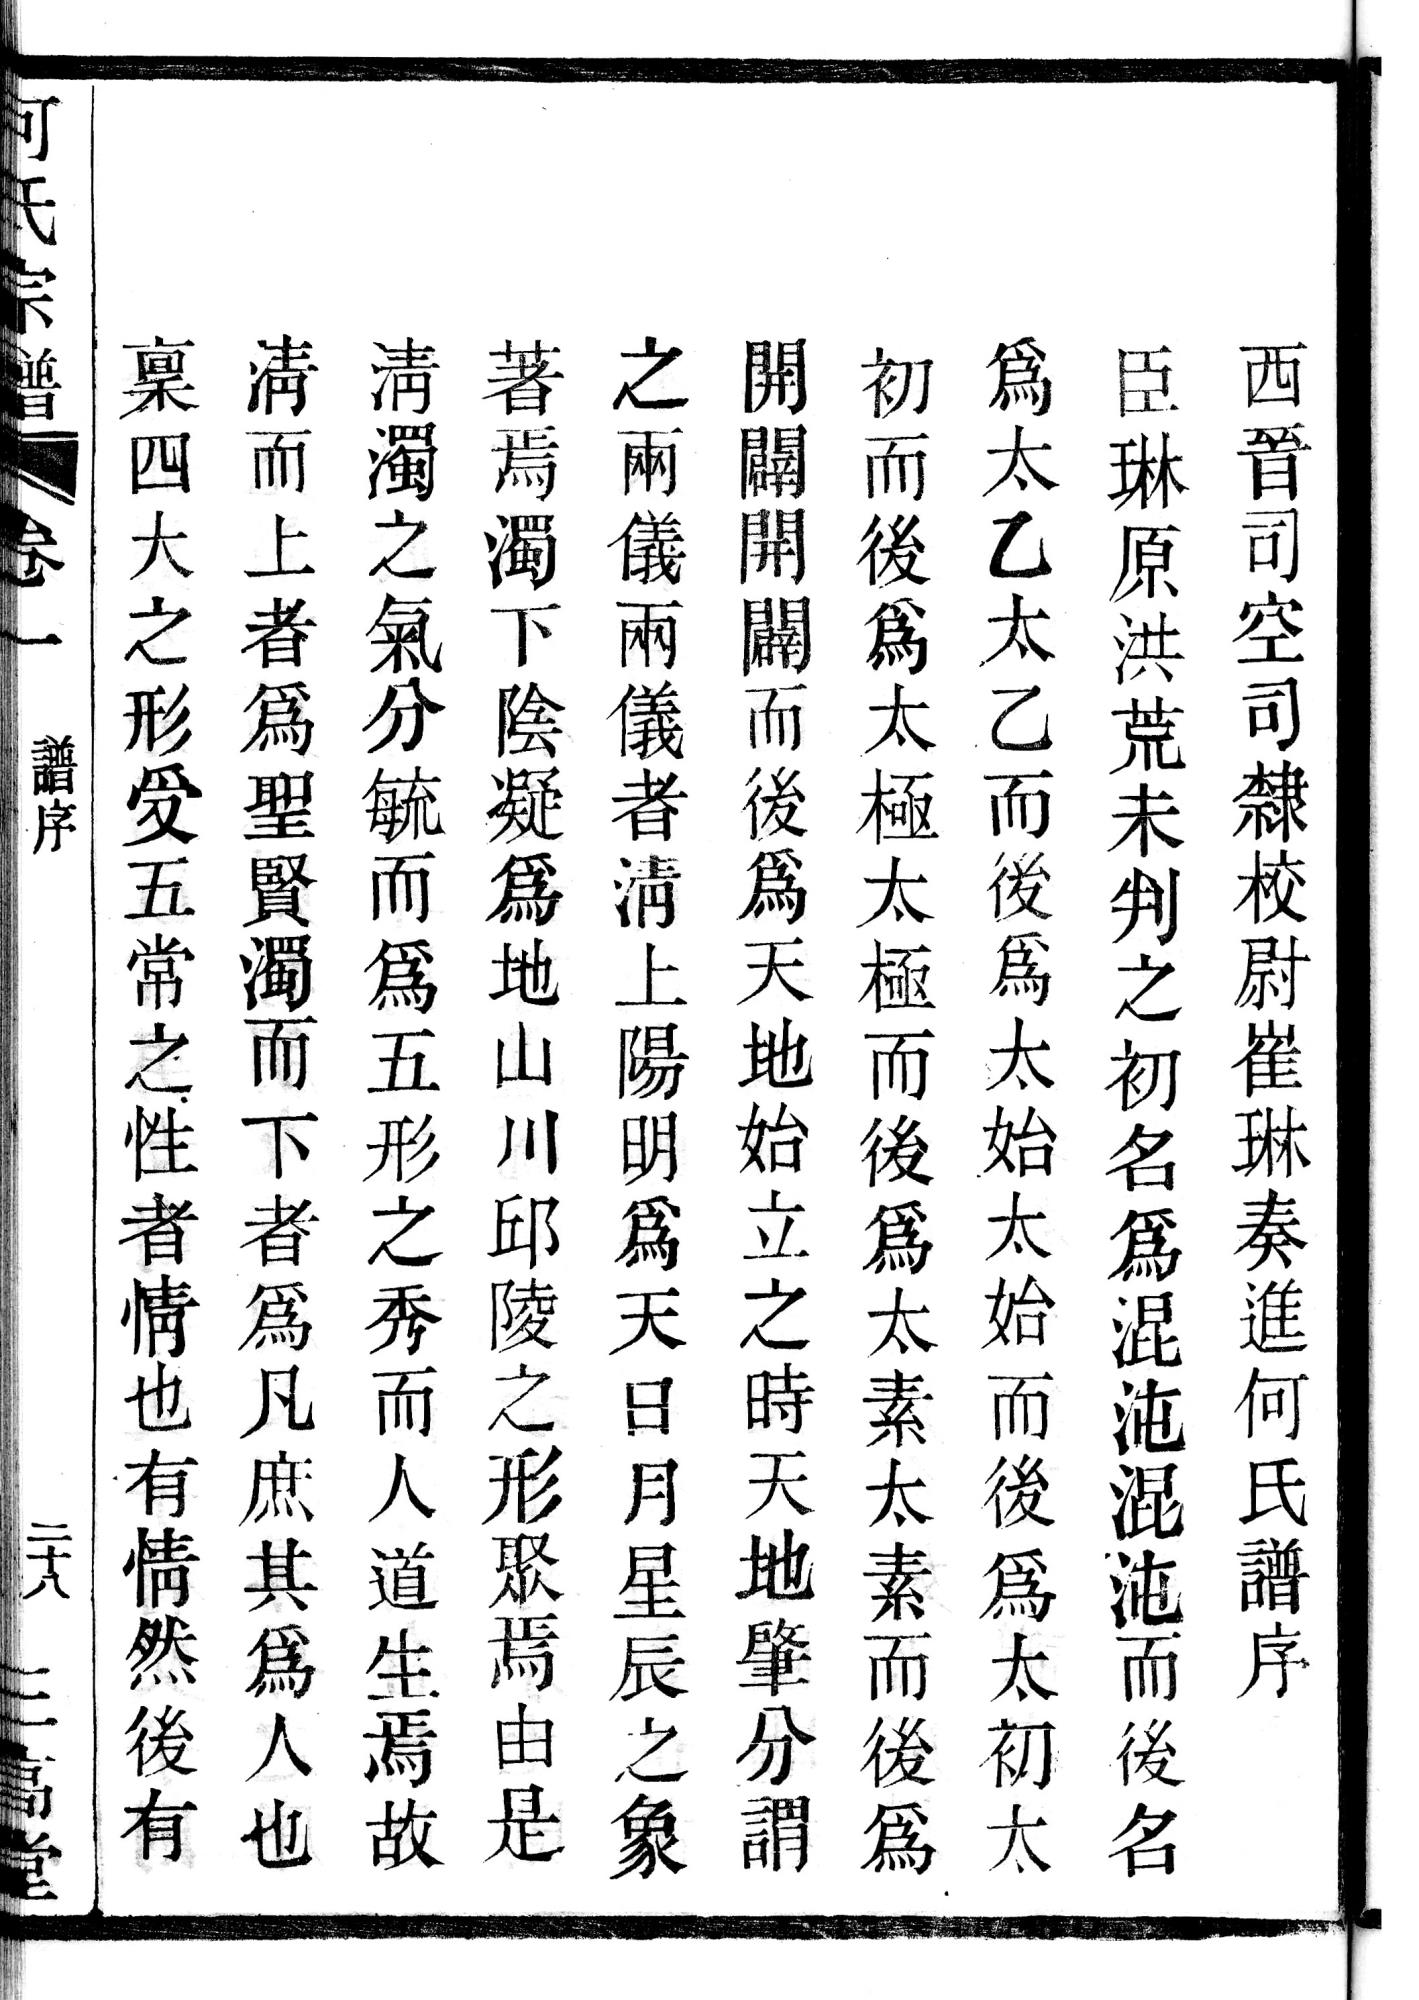 西晉司空司隸校尉崔琳奏進何氏譜序
臣琳原洪荒未判之初名爲混沌混沌而後名
爲太乙太乙而後爲太始太始而後爲太初太
初而後爲太極太極而後爲太素太素而後爲
開闢開闢而後爲天地始立之時天地肇分謂
之兩儀兩儀者清上陽明爲天日月星辰之象
著焉濁下陰凝爲地山川邱陵之形聚焉由是
清濁之氣分毓而爲五形之秀而人道生焉故
清而上者爲聖賢濁而下者爲凡庶其爲人也
稟四大之形受五常之性者情也有情然後有
何氏宗譜 卷一 譜序 二十八 三高堂